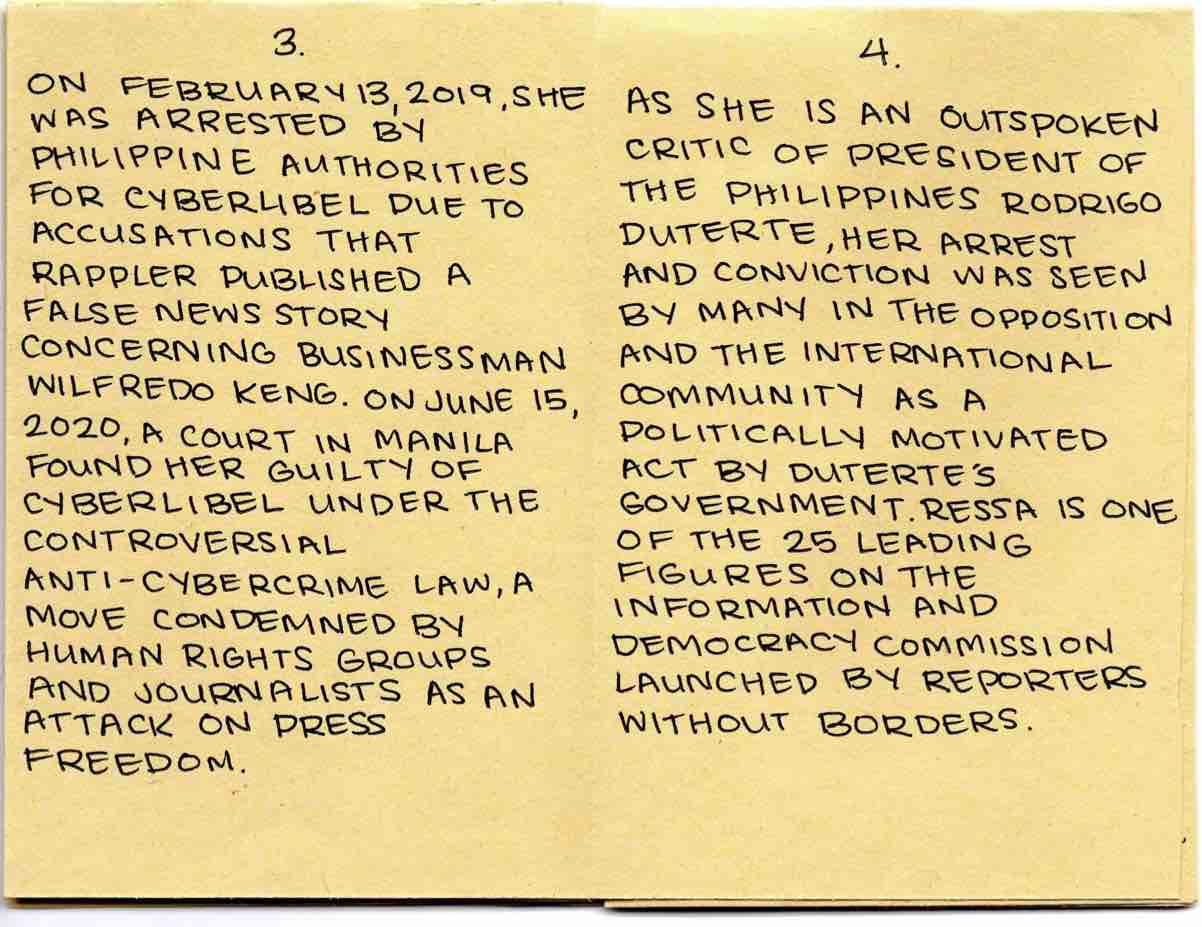 3.
ON FEBRUARY 13, 2019, SHE
WAS ARRESTED BY
PHILIPPINE AUTHORITIES
FOR CYBERLIBEL DUE TO
ACCUSATIONS THAT
RAPPLER PUBLISHED A
FALSE NEWS STORY
CONCERNING BUSINESSMAN
WILFREDO KENG. ON JUNE 15,
2020, A COURT IN MANILA
FOUND HER GUILTY OF
CYBERLIBEL UNDER THE
CONTROVERSIAL
ANTI-CYBERCRIME LAW, A
MOVE CONDEMNED BY
HUMAN RIGHTS GROUPS
AND JOURNALISTS AS AN
ATTACK ON PRESS
FREEDOM.
4.
AS SHE IS AN OUTSPOKEN
CRITIC OF PRESIDENT OF
THE PHILIPPINES RODRIGO
DUTERTE, HER ARREST
AND CONVICTION WAS SEEN
BY MANY IN THE OPPOSITION
AND THE INTERNATIONAL
COMMUNITY AS A
POLITICALLY MOTIVATED
ACT BY DUTERTE'S
GOVERNMENT. RESSA IS ONE
OF THE 25 LEADING
FIGURES ON THE
INFORMATION AND
DEMOCRACY COMMISSION
LAUNCHED BY REPORTERS
WITHOUT BORDERS.